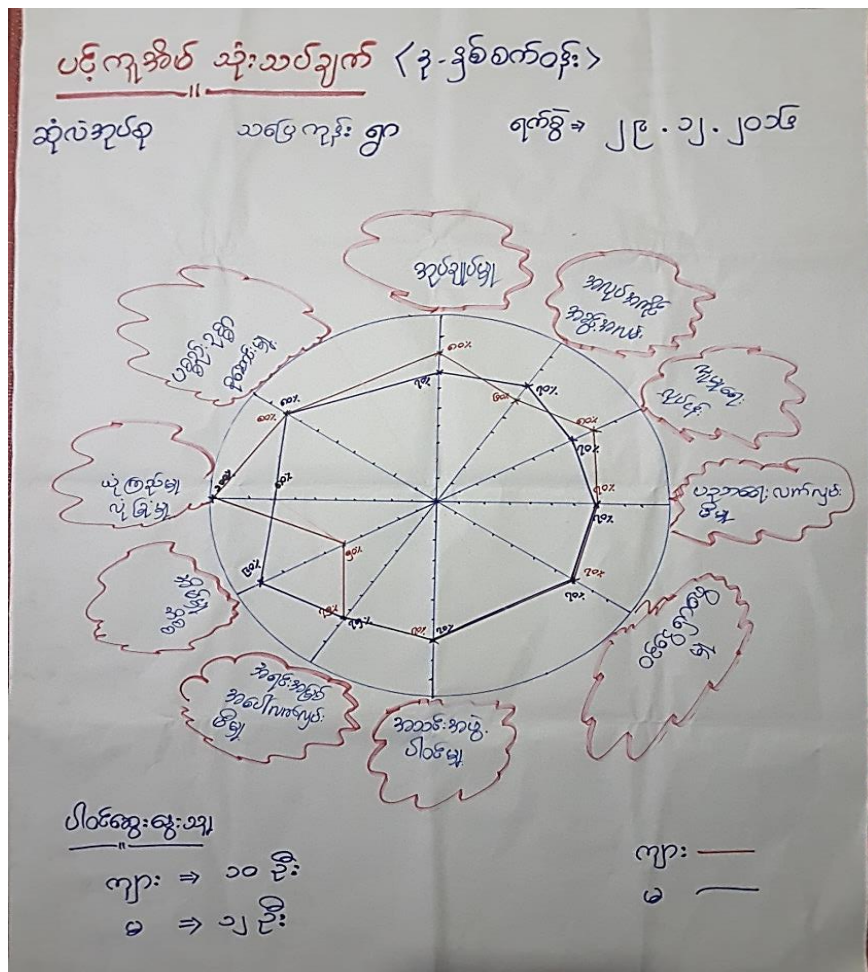 ပင့်ကူအိမ် သုံးသပ်ချက် <ဒု-နှစ်စက်ဝန်း>
ဆုံလဲအုပ်စု သပြေကုန်း ရွာ ရက်စွဲ ⇒ ၂၉.၁၂.၂၀၁၆
အုပ်ချုပ်မှု
အလုပ်အကိုင်
အခွင့်အလမ်း
လုပ်ငန်း
ပညာရေး လက်လှမ်း
မီမှု
အသင်းအဖွဲ့
ပါဝင်မှု
အရင်းအမြစ်
အပေါ်လက်လှမ်း
မီမှု
ယုံကြည်မှု
လုံခြုံမှု
၈၀%
၇၀%
၆၀%
၇၀%
၈၀%
၇၀%
၇၀%
၇၀%
၇၀%
၇၀%
၇၀%
၇၀%
၇၅%
၇၅%
၅၀%
၈၀%
၁၀၀%
၈၀%
၈၀%
ပါဝင်ဆွေးနွေးသူ
ကျား ⇒ ၁၀ ဦး
မ ⇒ ၁၂ ဦး
ကျား
မ